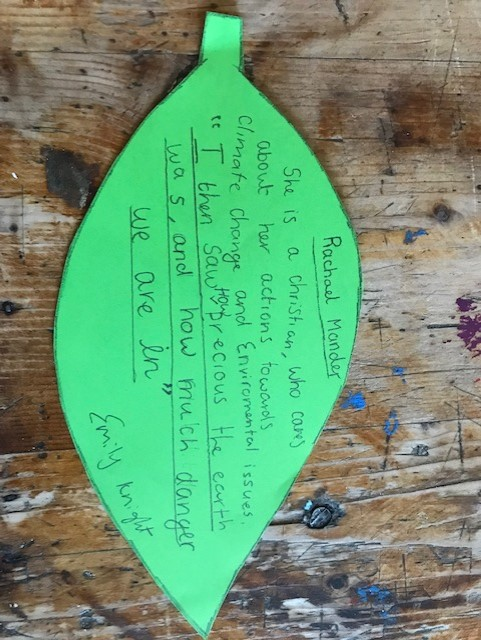 Rachael Mander
She is a christian, who cares
about her actions towards
climate change and Enviromental issues.
"I then saw how precious the earth
was, and how much danger
we are in"
Emily Knight